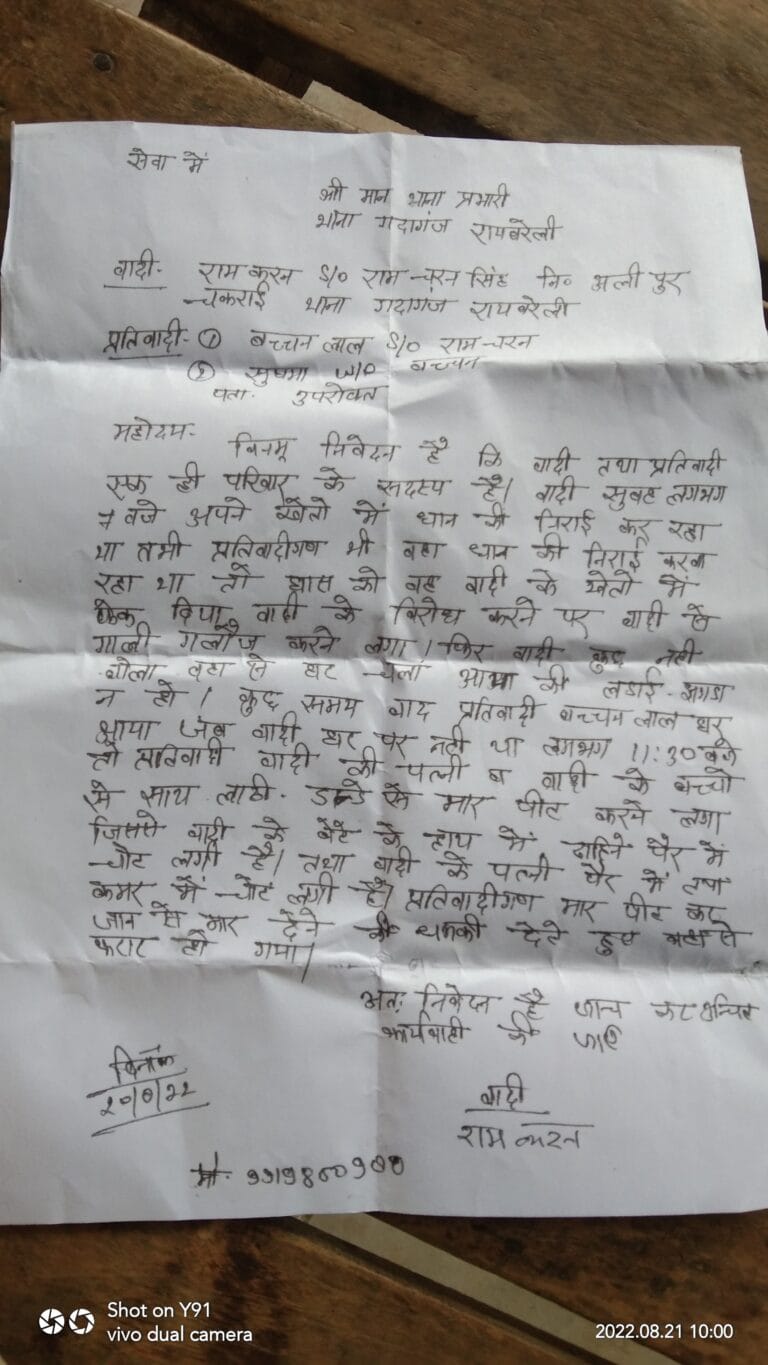 सेवा में
श्री मान थाना प्रभारी
थाना गदागंज रायबरेली
वादी- राम करन S/o राम चरन सिंह नि० अली पुर
चकराई थाना गदागंज रायबरेली
प्रतिवादी- ① बच्चन लाल S/o राम चरन
② सुषमा W/o बच्चन
पता- उपरोक्त
महोदय-
विनम्र निवेदन है कि वादी तथा प्रतिवादी
एक ही परिवार के सदस्य है। वादी सुबह लगभग
7 वजे अपने खेतो में धान की निराई कर रहा
था तभी प्रतिवादीगण भी वहा धान की निराई करक
रहा था तो घास को वह वादी के खेतो में
फेक दिया वादी के विरोध करने पर वादी से
गाली गलौज करने लगा। फिर वादी कुछ नही
बोला वहा से घर चला आया की लडाई-झगडा
न हो। कुछ समय बाद प्रतिवादी बच्चन लाल घर
आया जब वादी घर पर नही था लगभग 11:30 बजे
तो प्रतिवादी वादी की पत्नी व वादी के बच्चो
से साथ लाठी-डन्डे से मार पीट करने लगा
जिससे वादी के बेटे के हाथ में, दाहिने पैर में
चोट लगी है। तथा वादी के पत्नी पैर में तथा
कमर में चोट लगी है। प्रतिवादीगण मार पीट कर
जान से मार देने की धमकी देते हुए वहा से
फरार हो गया।
अतः निवेदन है जान्च कर उचित
कार्यवाही की जाए
दिनांक
20/8/22
वादी
राम करन
मो. 9919860900
Shot on Y91
vivo dual camera
2022.08.21 10:00